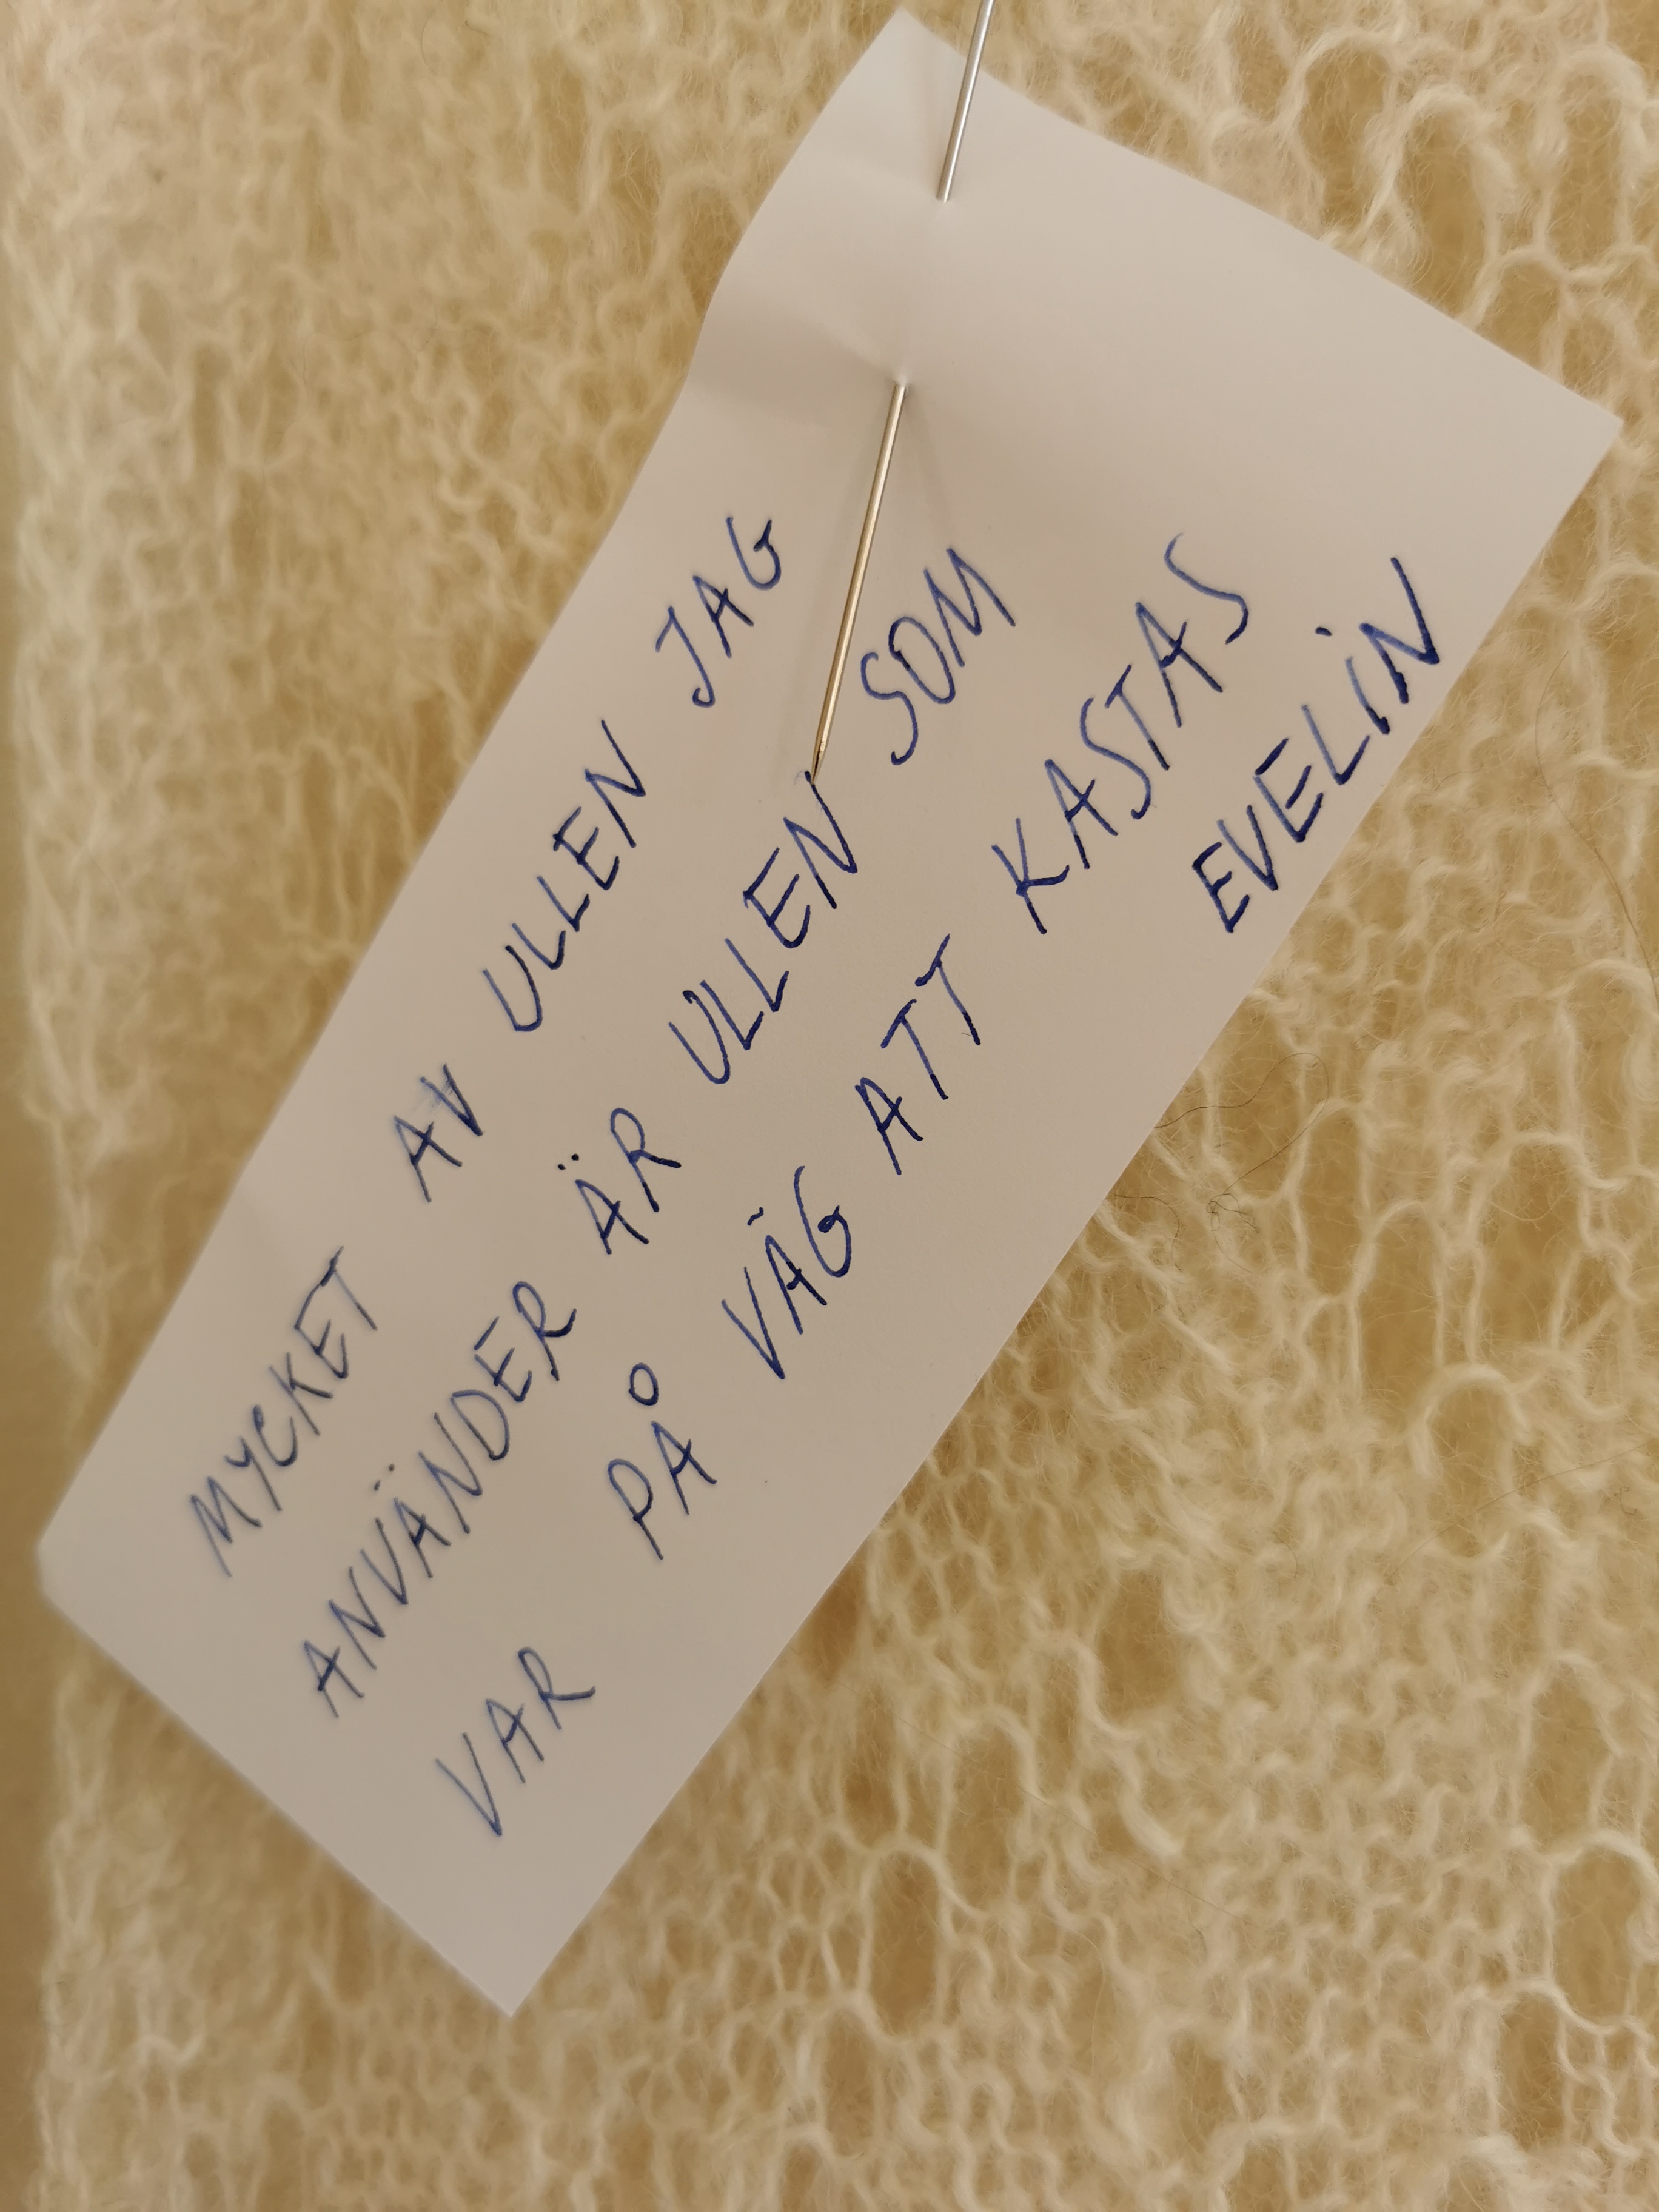 MYCKET AV ULLEN JAG
ANVÄNDER ÄR ULLEN SOM
VAR PÅ VÄG ATT KASTAS
EVELIN